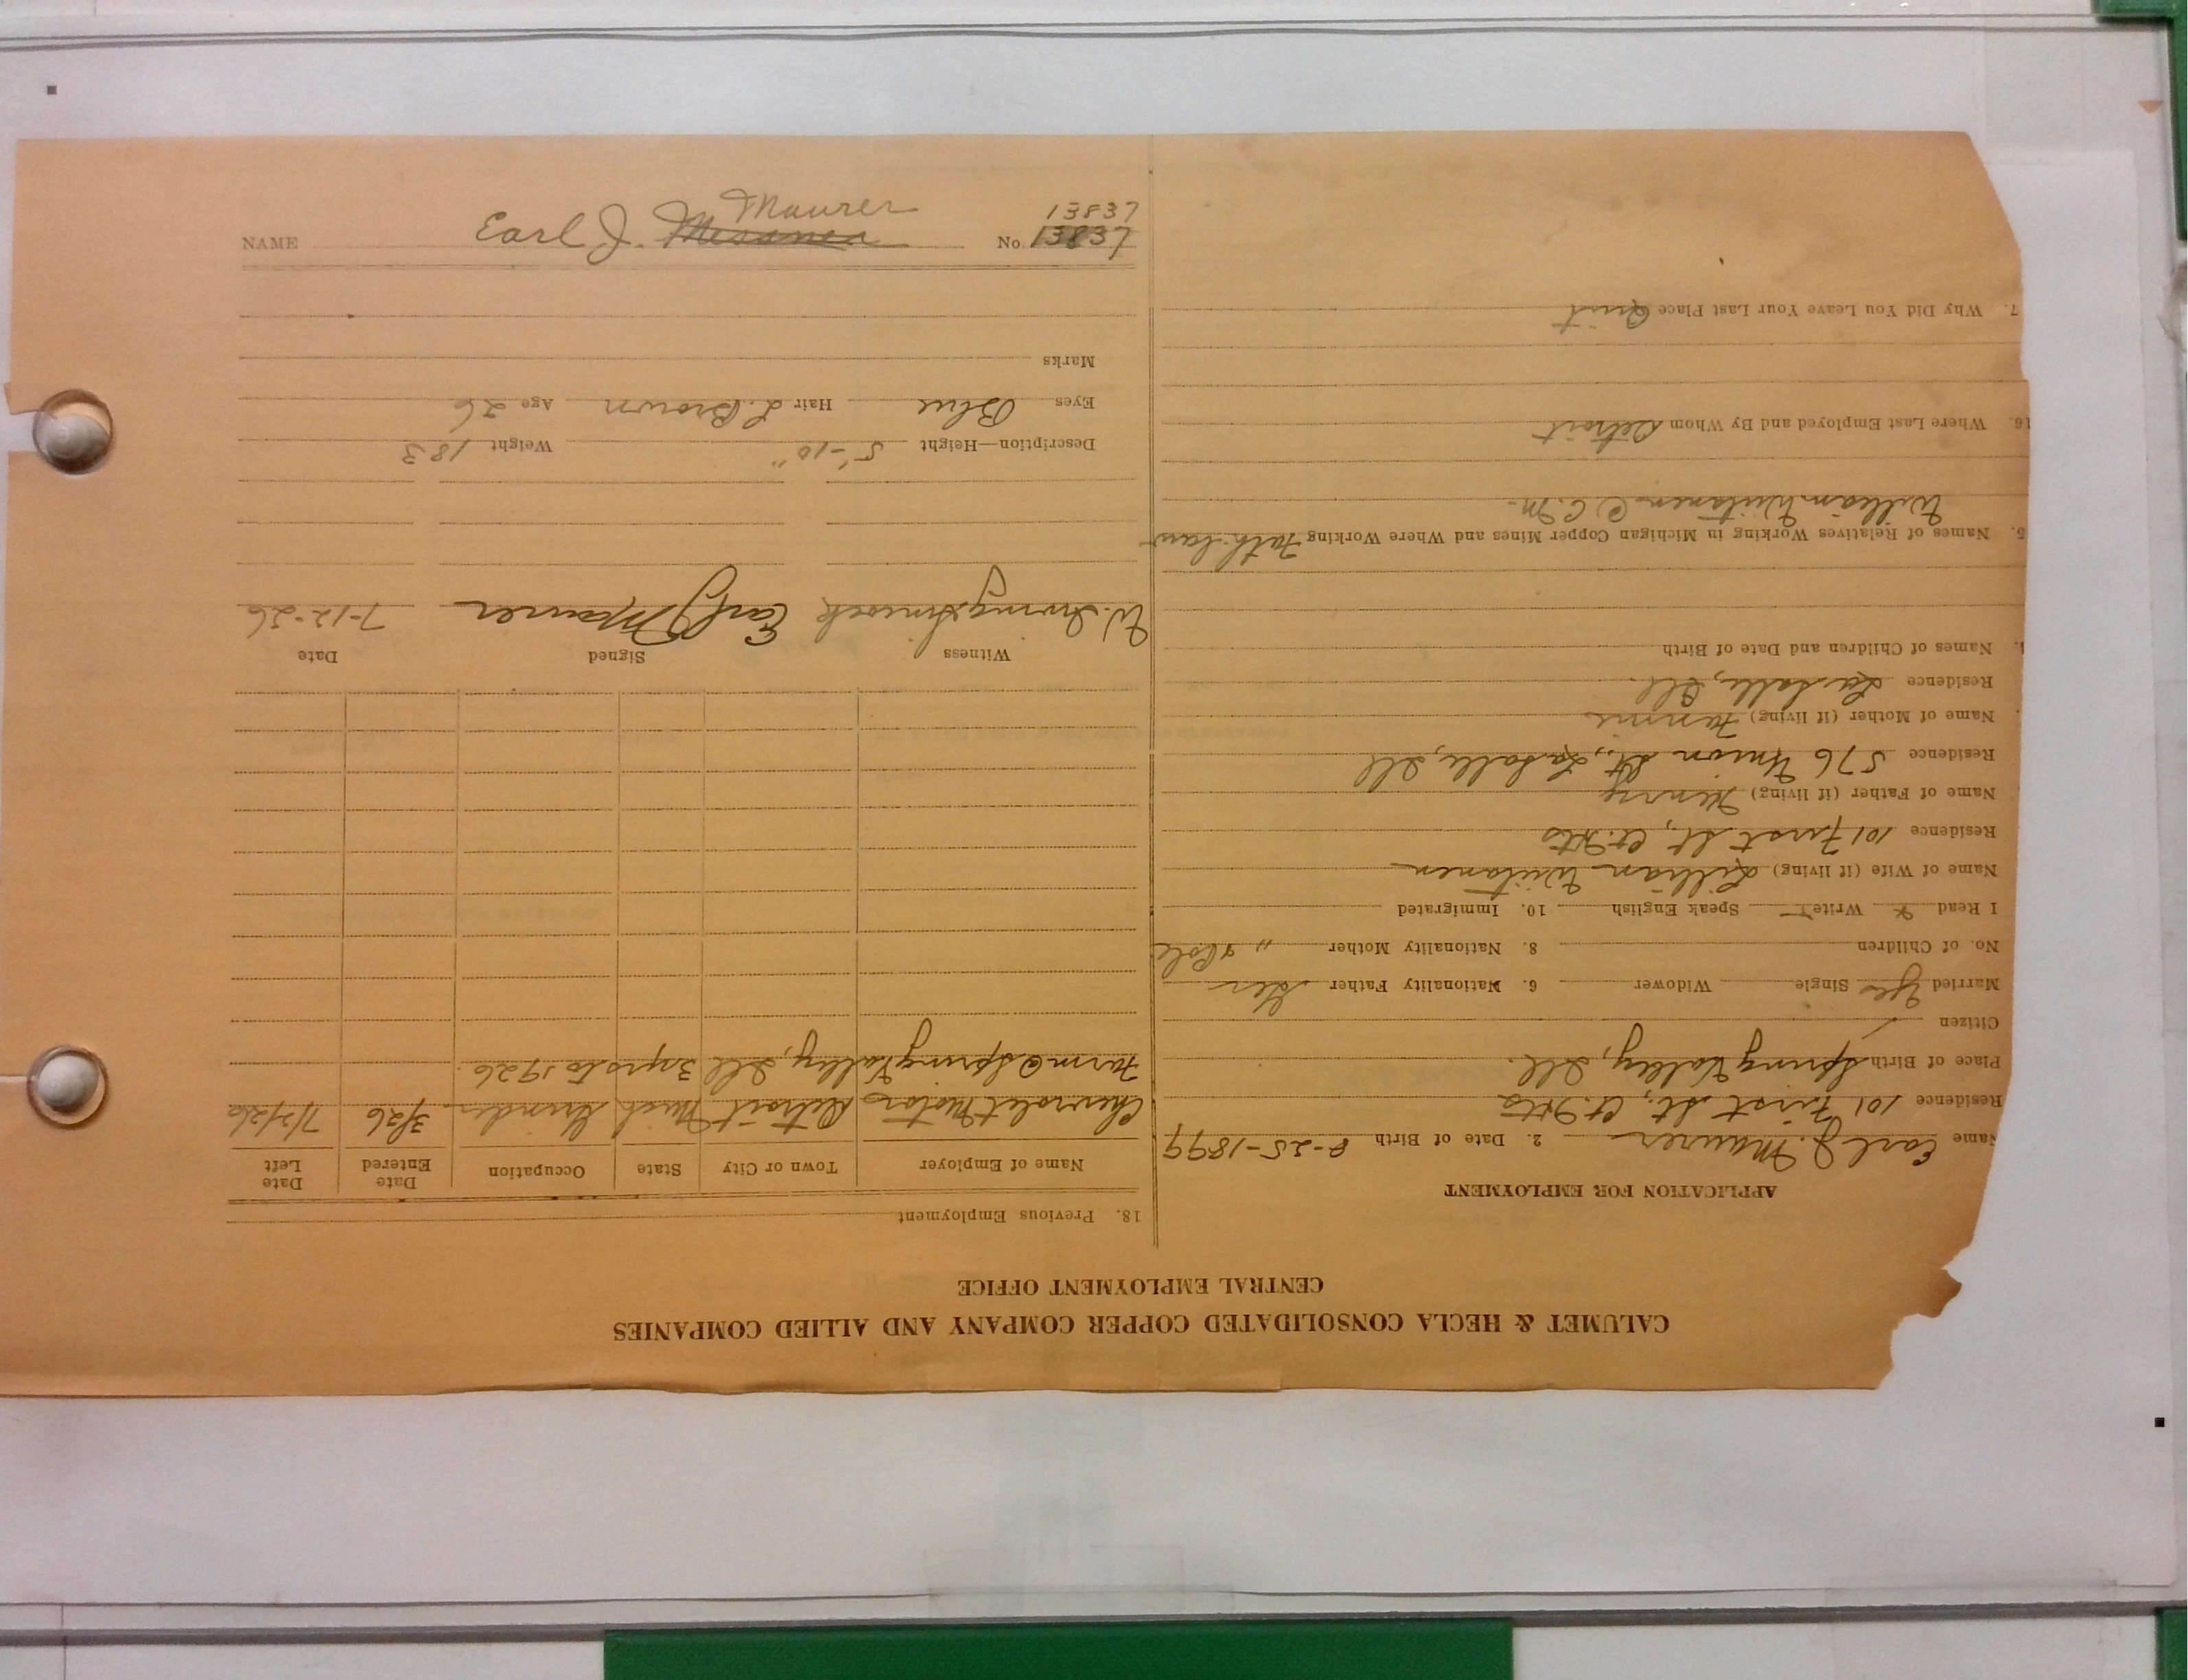 CALUMET & HECLA CONSOLIDATED COPPER COMPANY AND ALLIED COMPANIES
CENTRAL EMPLOYMENT OFFICE
APPLICATION FOR EMPLOYMENT
Name Earl J. Maurer 2. Date of Birth 8-25-1899
Residence 101 First St., Ct. Hts
Place of Birth Spring Valley, Ill.
Citizen
Married Yes Single Widower 6. Nationality Father Ger
No. of Children 8. Nationality Mother " & Pole
I Read Write Speak English 10. Immigrated
Name of Wife (if living) Lillian Wiitanen
Residence 101 First St, Ct. Hts
Name of Father (if living) Henry
Residence 576 Union St., La Salle, Ill
Name of Mother (if living) Fannie
Residence La Salle, Ill.
Names of Children and Date of Birth
5. Names of Relatives Working in Michigan Copper Mines and Where Working Fath-law
William Wiitanen @ C.M.
16. Where Last Employed and By Whom Detroit
7. Why Did You Leave Your Last Place Quit
18. Previous Employment
Name of Employer Town or City State Occupation Date Entered Date Left
Chevrolet Motors Detroit Mich Grinder 3/26 7/2/26
Farm @ Spring Valley, Ill 3 yrs to 1926.
Witness Signed Date
W. Irving Earl J Maurer 7-12-26
Description—Height 5'-10" Weight 183
Eyes Blue Hair L. Brown Age 26
Marks
Maurer 13837
NAME Earl J. No. 13837